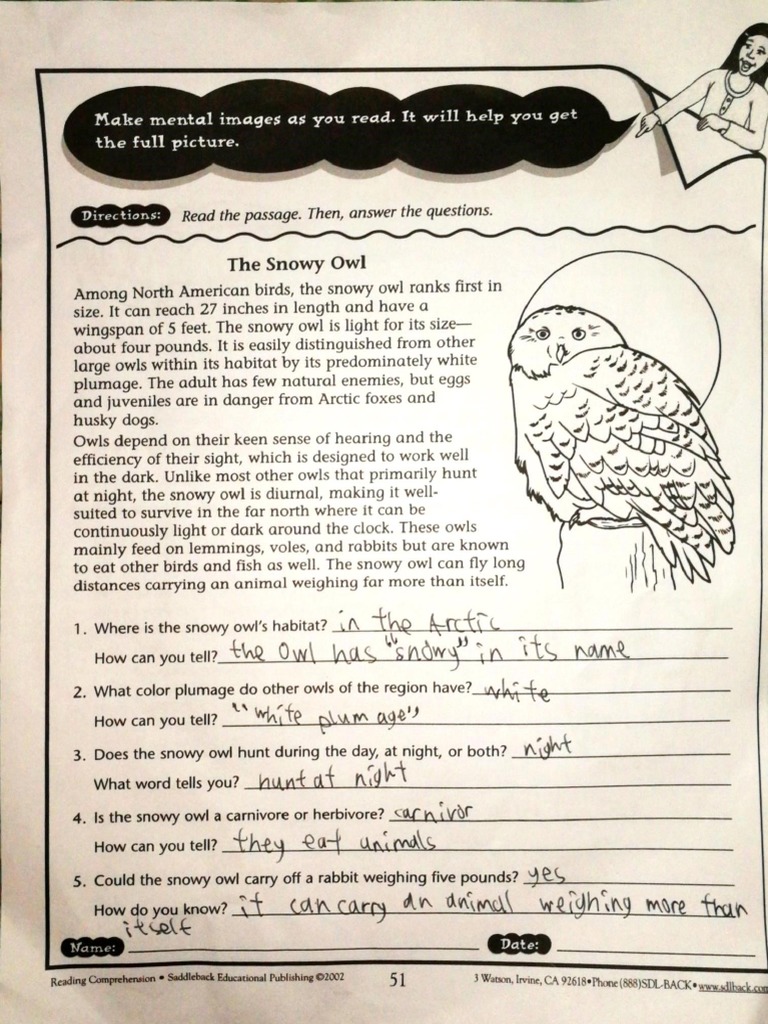 Make mental images as you read. It will help you get
the full picture.
Directions: Read the passage. Then, answer the questions.
The Snowy Owl
Among North American birds, the snowy owl ranks first in
size. It can reach 27 inches in length and have a
wingspan of 5 feet. The snowy owl is light for its size—
about four pounds. It is easily distinguished from other
large owls within its habitat by its predominately white
plumage. The adult has few natural enemies, but eggs
and juveniles are in danger from Arctic foxes and
husky dogs.
Owls depend on their keen sense of hearing and the
efficiency of their sight, which is designed to work well
in the dark. Unlike most other owls that primarily hunt
at night, the snowy owl is diurnal, making it well-
suited to survive in the far north where it can be
continuously light or dark around the clock. These owls
mainly feed on lemmings, voles, and rabbits but are known
to eat other birds and fish as well. The snowy owl can fly long
distances carrying an animal weighing far more than itself.
1. Where is the snowy owl's habitat? in the Arctic
How can you tell? the owl has "snowy" in its name
2. What color plumage do other owls of the region have? white
How can you tell? "white plumage"
3. Does the snowy owl hunt during the day, at night, or both? night
What word tells you? hunt at night
4. Is the snowy owl a carnivore or herbivore? carnivor
How can you tell? they eat animals
5. Could the snowy owl carry off a rabbit weighing five pounds? yes
How do you know? it can carry an animal weighing more than
itself
Name: Date:
Reading Comprehension • Saddleback Educational Publishing ©2002 51 3 Watson, Irvine, CA 92618•Phone (888)SDL-BACK•www.sdlback.com